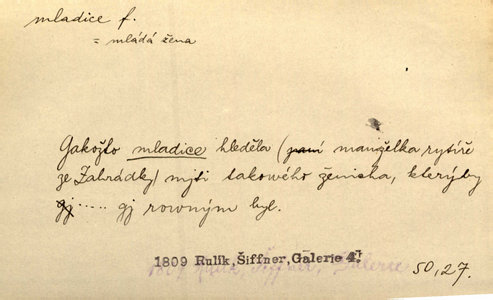 mladice f.
= mládá žena
Gakožto mladice hleděla (paní mangelka rytíře
ze Zahrádky) mjti takowého ženicha, kterýby
gj ..... gj rowným byl.
1809 Rulík, Šiffner, Galerie 4.
1809 Rulík, Šiffner, Galerie
50,27.